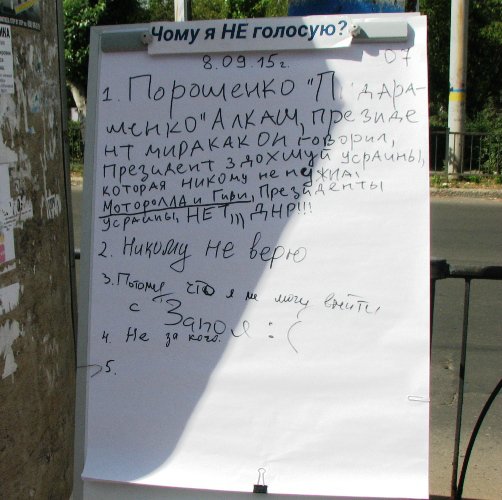 Чому я НЕ голосую?
8.09.15г.
07
1. Порошенко "П. дара-
менко" Алкаш, президе
нт мира как он говорил,
Президент здохшуй Украины,
которая никому не нужна!
Моторолла и Гиви, Президенты
Украины, НЕТ,,, ДНР!!!
2. Никому не верю
3. Потому что я не могу выйти
с Запоя :(
4. Не за кого.
5.